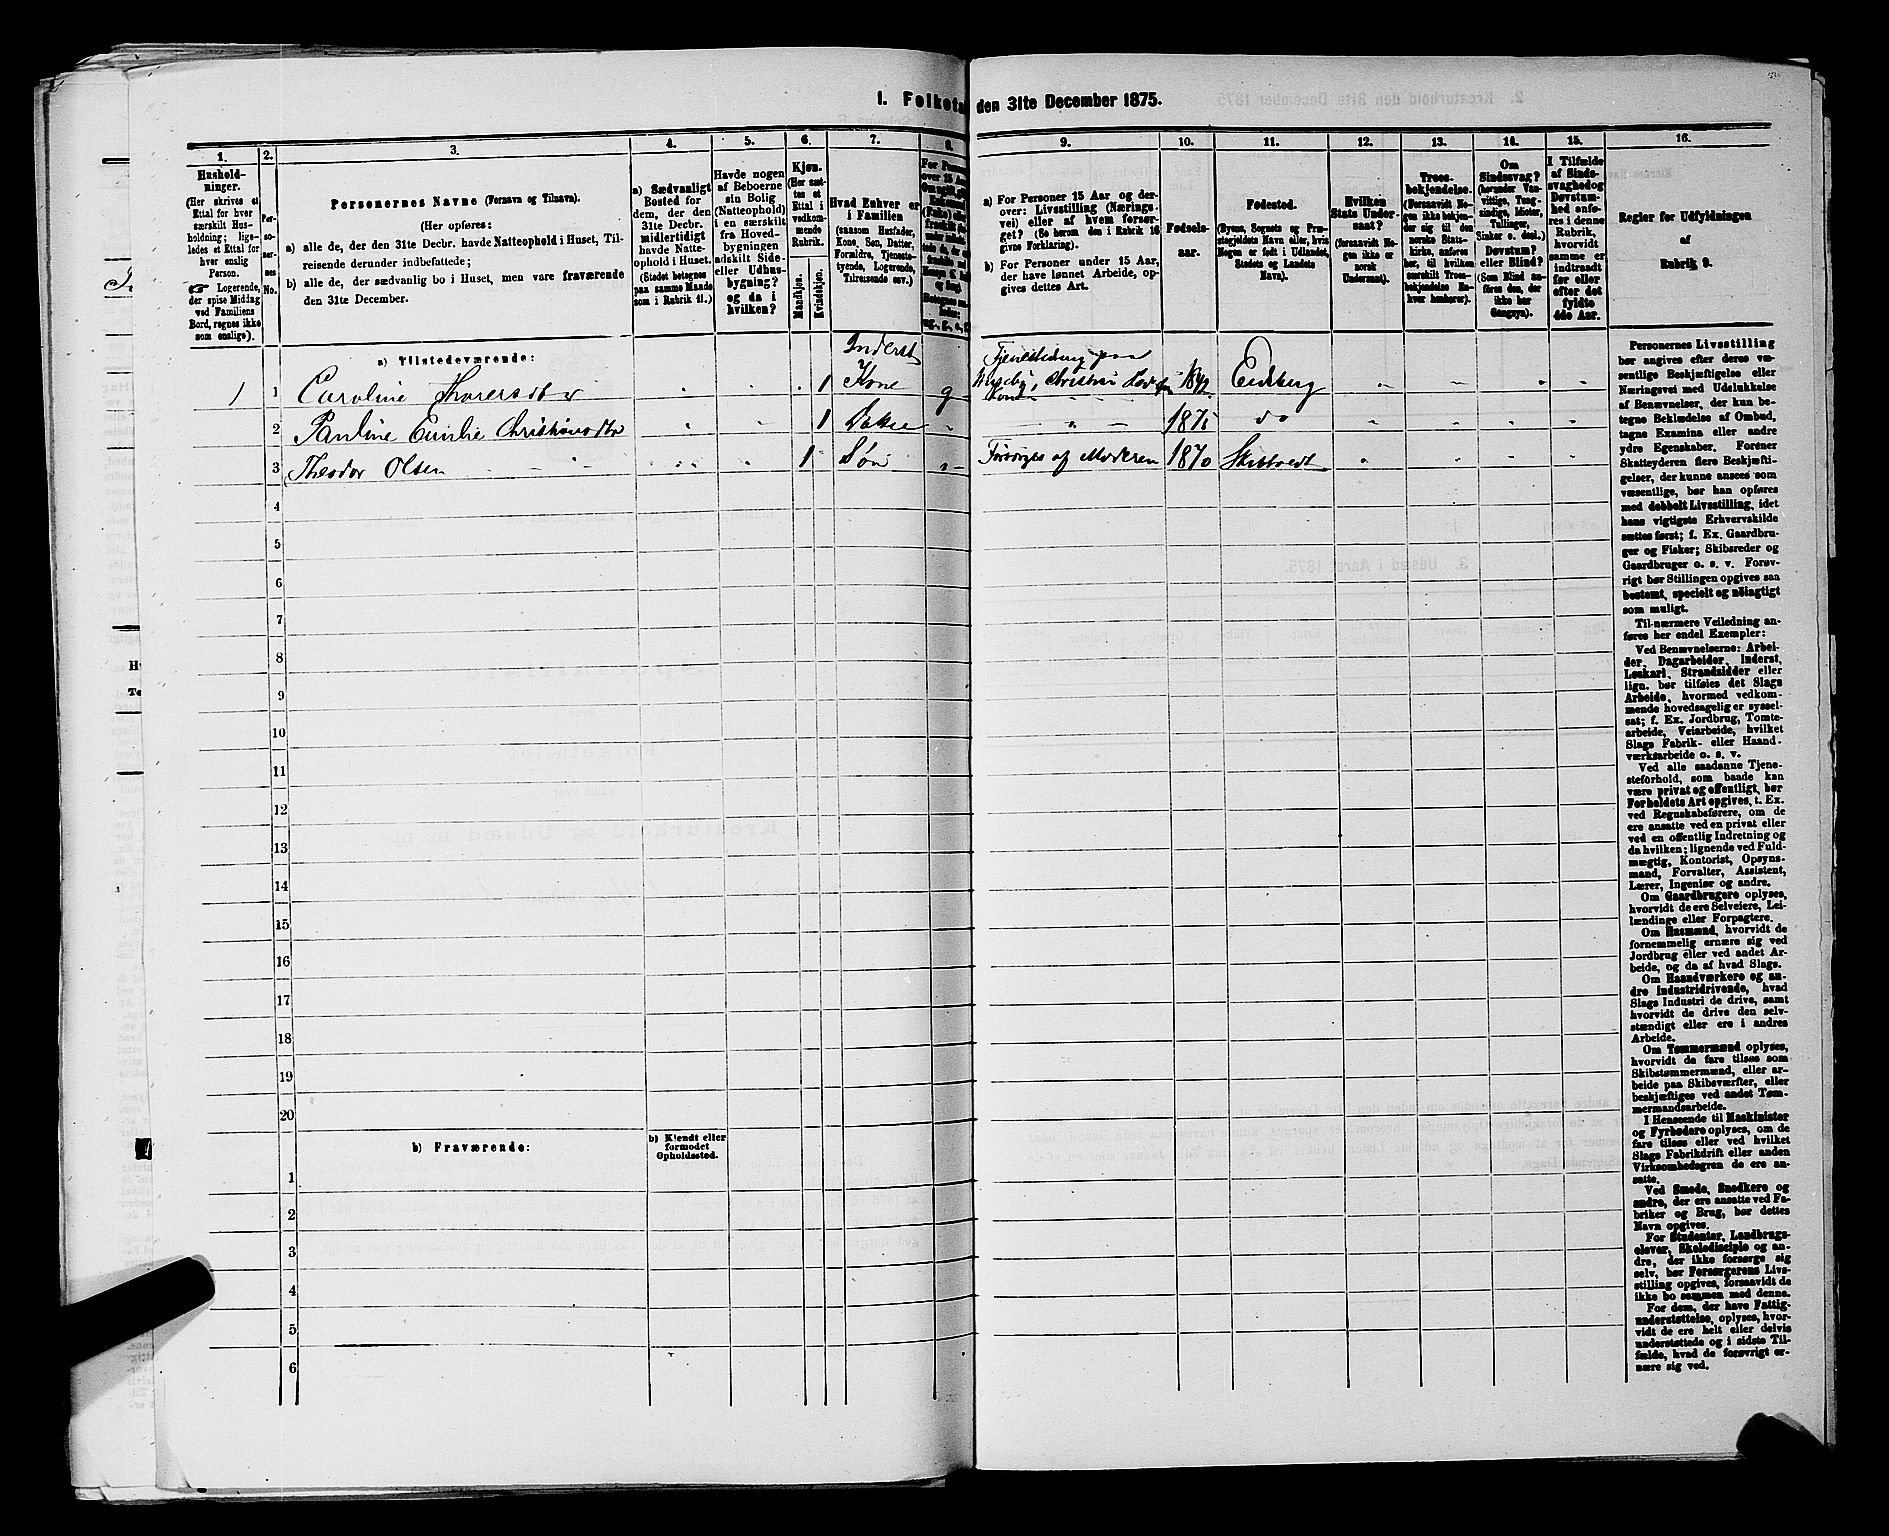 1. Folketæ den 31te December 1875.
1. 2. 3. 4. 5. 6. 7. 8. 9. 10. 11. 12. 13. 14. 15. 16.
Hushold-
ninger.
(Her skrives et
Ettal for hver
særskilt Hus-
holdning; lige-
ledes et Ettal for
hver enslig
Person.
☞ Logerende,
der spise Middag
ved Familiens
Bord, regnes ikke
som enslige).
Per-
so-
ner-
nes
No.
Personernes Navne (Fornavn og Tilnavn).
(Her opføres:
a) alle de, der den 31te Decbr. havde Natteophold i Huset, Til-
reisende derunder indbefattede;
b) alle de, der sædvanlig bo i Huset, men vare fraværende
den 31te December.
a) Sædvanligt
Bosted for
dem, der den
31te Decbr.
midlertidigt
havde Natte-
ophold i Huset.
(Stedet betegnes
paa samme Maade
som i Rubrik 11.)
Havde nogen
af Beboerne
sin Bolig
(Natteophold)
i en særskilt
fra Hoved-
bygningen
adskilt Side-
eller Udhus-
bygning?
og da i
hvilken?
Kjøn.
(Her sæt-
tes et
Ettal i
vedkom-
mende
Rubrik.
Mandkjøn.
Kvindekjøn.
Hvad Enhver er
i Familien
(saasom Husfader,
Kone, Søn, Datter,
Forældre, Tjeneste-
tyende, Logerende,
Tilreisende osv.)
a) For Personer 15 Aar og der-
over: Livsstilling (Nærings-
vei) eller af hvem forsør-
get? (Se herom den i Rubrik 16
givne Forklaring).
b) For Personer under 15 Aar,
der have lønnet Arbeide, op-
gives dettes Art.
Fødsels-
aar.
Fødested.
(Byens, Sognets og Præ-
stegjeldets Navn eller, hvis
Nogen er født i Udlandet,
Stedets og Landets
Navn.)
Hvilken
Stats Under-
saat?
(forsaavidt No-
gen ikke er
norsk
Undersaat).
Troes-
bekjendelse.
(Forsaavidt No-
gen ikke bekjen-
der sig til den
norske Stats-
kirke, anføres
her, til hvilken
særskilt Troes-
bekjendelse En-
hver henhører).
Om
Sindssvag?
(herunder Van-
vittige, Tung-
sindige, Idioter,
Tullinger,
Sinker o. desl.)
Døvstum?
eller Blind?
(Som Blind an-
føres den, der
ikke har
Gangsyn).
I Tilfælde
af Sinds-
svaghed og
Døvstum-
hed anfø-
res i denne
Rubrik,
hvorvidt
samme er
indtraadt
før eller
efter det
fyldte
4de Aar.
Regler for Udfyldningen
af
Rubrik 9.
a) Tilstedeværende:
1 1 Caroline Thoresdtr 1 Inderst Kone g Tjenestedreng paa 1842 Eidsberg
2 Pauline Emilie Christiansdtr 1 Datter 1875 do
3 Theodor Olsen 1 Søn Forsørges af Moderen 1870 Skibtvedt
4
5
6
7
8
9
10
11
12
13
14
15
16
17
18
19
20
b) Fraværende:
b) Kjendt eller
formodet
Opholdssted.
1
2
3
4
5
6
Personernes Livsstilling
bør angives efter deres væ-
sentlige Beskjæftigelse eller
Næringsvei med Udelukkelse
af Benævnelser, der kun be-
tegne Beklædelse af Ombud,
tagne Examina eller andre
ydre Egenskaber. Forener
Skatteyderen flere Beskjæfti-
gelser, der kunne ansees som
væsentlige, bør han opføres
med dobbelt Livsstilling, idet
hans vigtigste Erhvervskilde
sættes først; f. Ex. Gaardbru-
ger og Fisker; Skibsreder og
Gaardbruger o. s. v. Forøv-
rigt bør Stillingen opgives saa
bestemt, specielt og nøiagtigt
som muligt.
Til nærmere Veiledning an-
føres her endel Exempler:
Ved Benævnelserne: Arbei-
der, Dagarbeider, Inderst,
Løskarl, Strandsidder eller
lign. bør tilføies det Slags
Arbeide, hvormed vedkom-
mende hovedsagelig er syssel-
sat; f. Ex. Jordbrug, Tomte-
arbeide, Veiarbeide, hvilket
Slags Fabrik- eller Haand-
værksarbeide o. s. v.
Ved alle saadanne Tjene-
steforhold, som baade kan
være privat og offentligt, bør
Forholdets Art opgives, t. Ex.
ved Regnskabsførere, om de
ere ansatte ved en privat eller
ved en offentlig Indretning og
da hvilken; lignende ved Fuld-
mægtig, Kontorist, Opsyns-
mand, Forvalter, Assistent,
Lærer, Ingeniør og andre.
Om Gaardbrugere oplyses,
hvorvidt de ere Selveiere, Lei-
lændinge eller Forpagtere.
Om Husmænd, hvorvidt de
fornemmelig ernære sig ved
Jordbrug eller ved andet Ar-
beide, og da af hvad Slags.
Om Haandværkere og an-
dre Industridrivende, hvad
Slags Industri de drive, samt
hvorvidt de drive den selv-
stændigt eller ere i andres
Arbeide.
Om Tømmermænd oplyses,
hvorvidt de fare tilsøs som
Skibstømmermænd, eller ar-
beide paa Skibsværfter, eller
beskjæftiges ved andet Tøm-
mermandsarbeide.
I Henseende til Maskinister
og Fyrbødere oplyses, om de
fare tilsøs eller ved hvilket
Slags Fabrikdrift eller anden
Virksomhedsgren de ere an-
satte.
Ved Smede, Snedkere og
andre, der ere ansatte ved Fa-
briker og Brug, bør dettes
Navn opgives.
For Studenter, Landbrugs-
elever, Skoledisciple og an-
dre, der ikke forsørge sig
selv, bør Forsørgerens Livs-
stilling opgives, forsaavidt de
ikke bo sammen med denne.
For dem, der have Fattig-
understøttelse, oplyses, hvor-
vidt de ere helt eller delvis
understøttede og i sidste Til-
fælde, hvad de forøvrigt er-
nære sig ved.